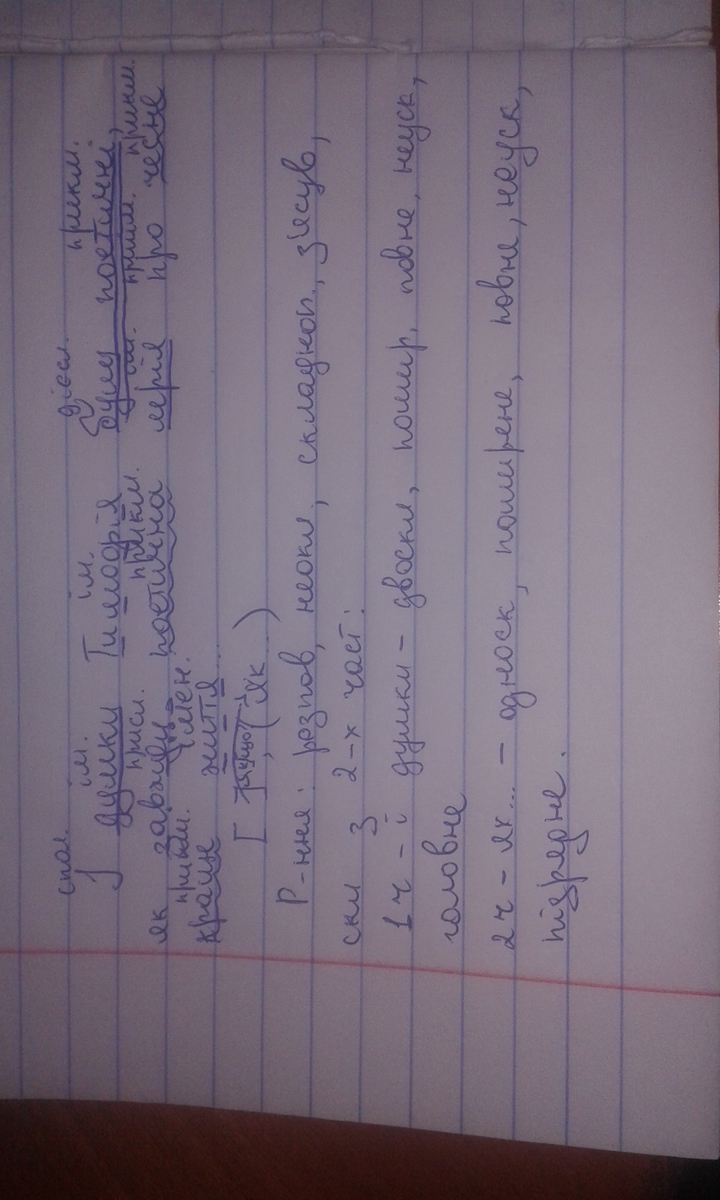 спол. ім. ім. дієсл. прикм.
І думки Тимофія були поетичні,
присл. прикм. ім. прийм. прикм.
як завжди поетична мрія про чесне
прикм. імен.
краще життя.
[ ], (як )
Р-ння: розпов, неокл, складноп., з'ясув,
скл з 2-х част:
1ч – і думки – двоскл, пошир, повне, неуск,
головне
2ч – як... – односк, поширене, повне, неуск,
підрядне.